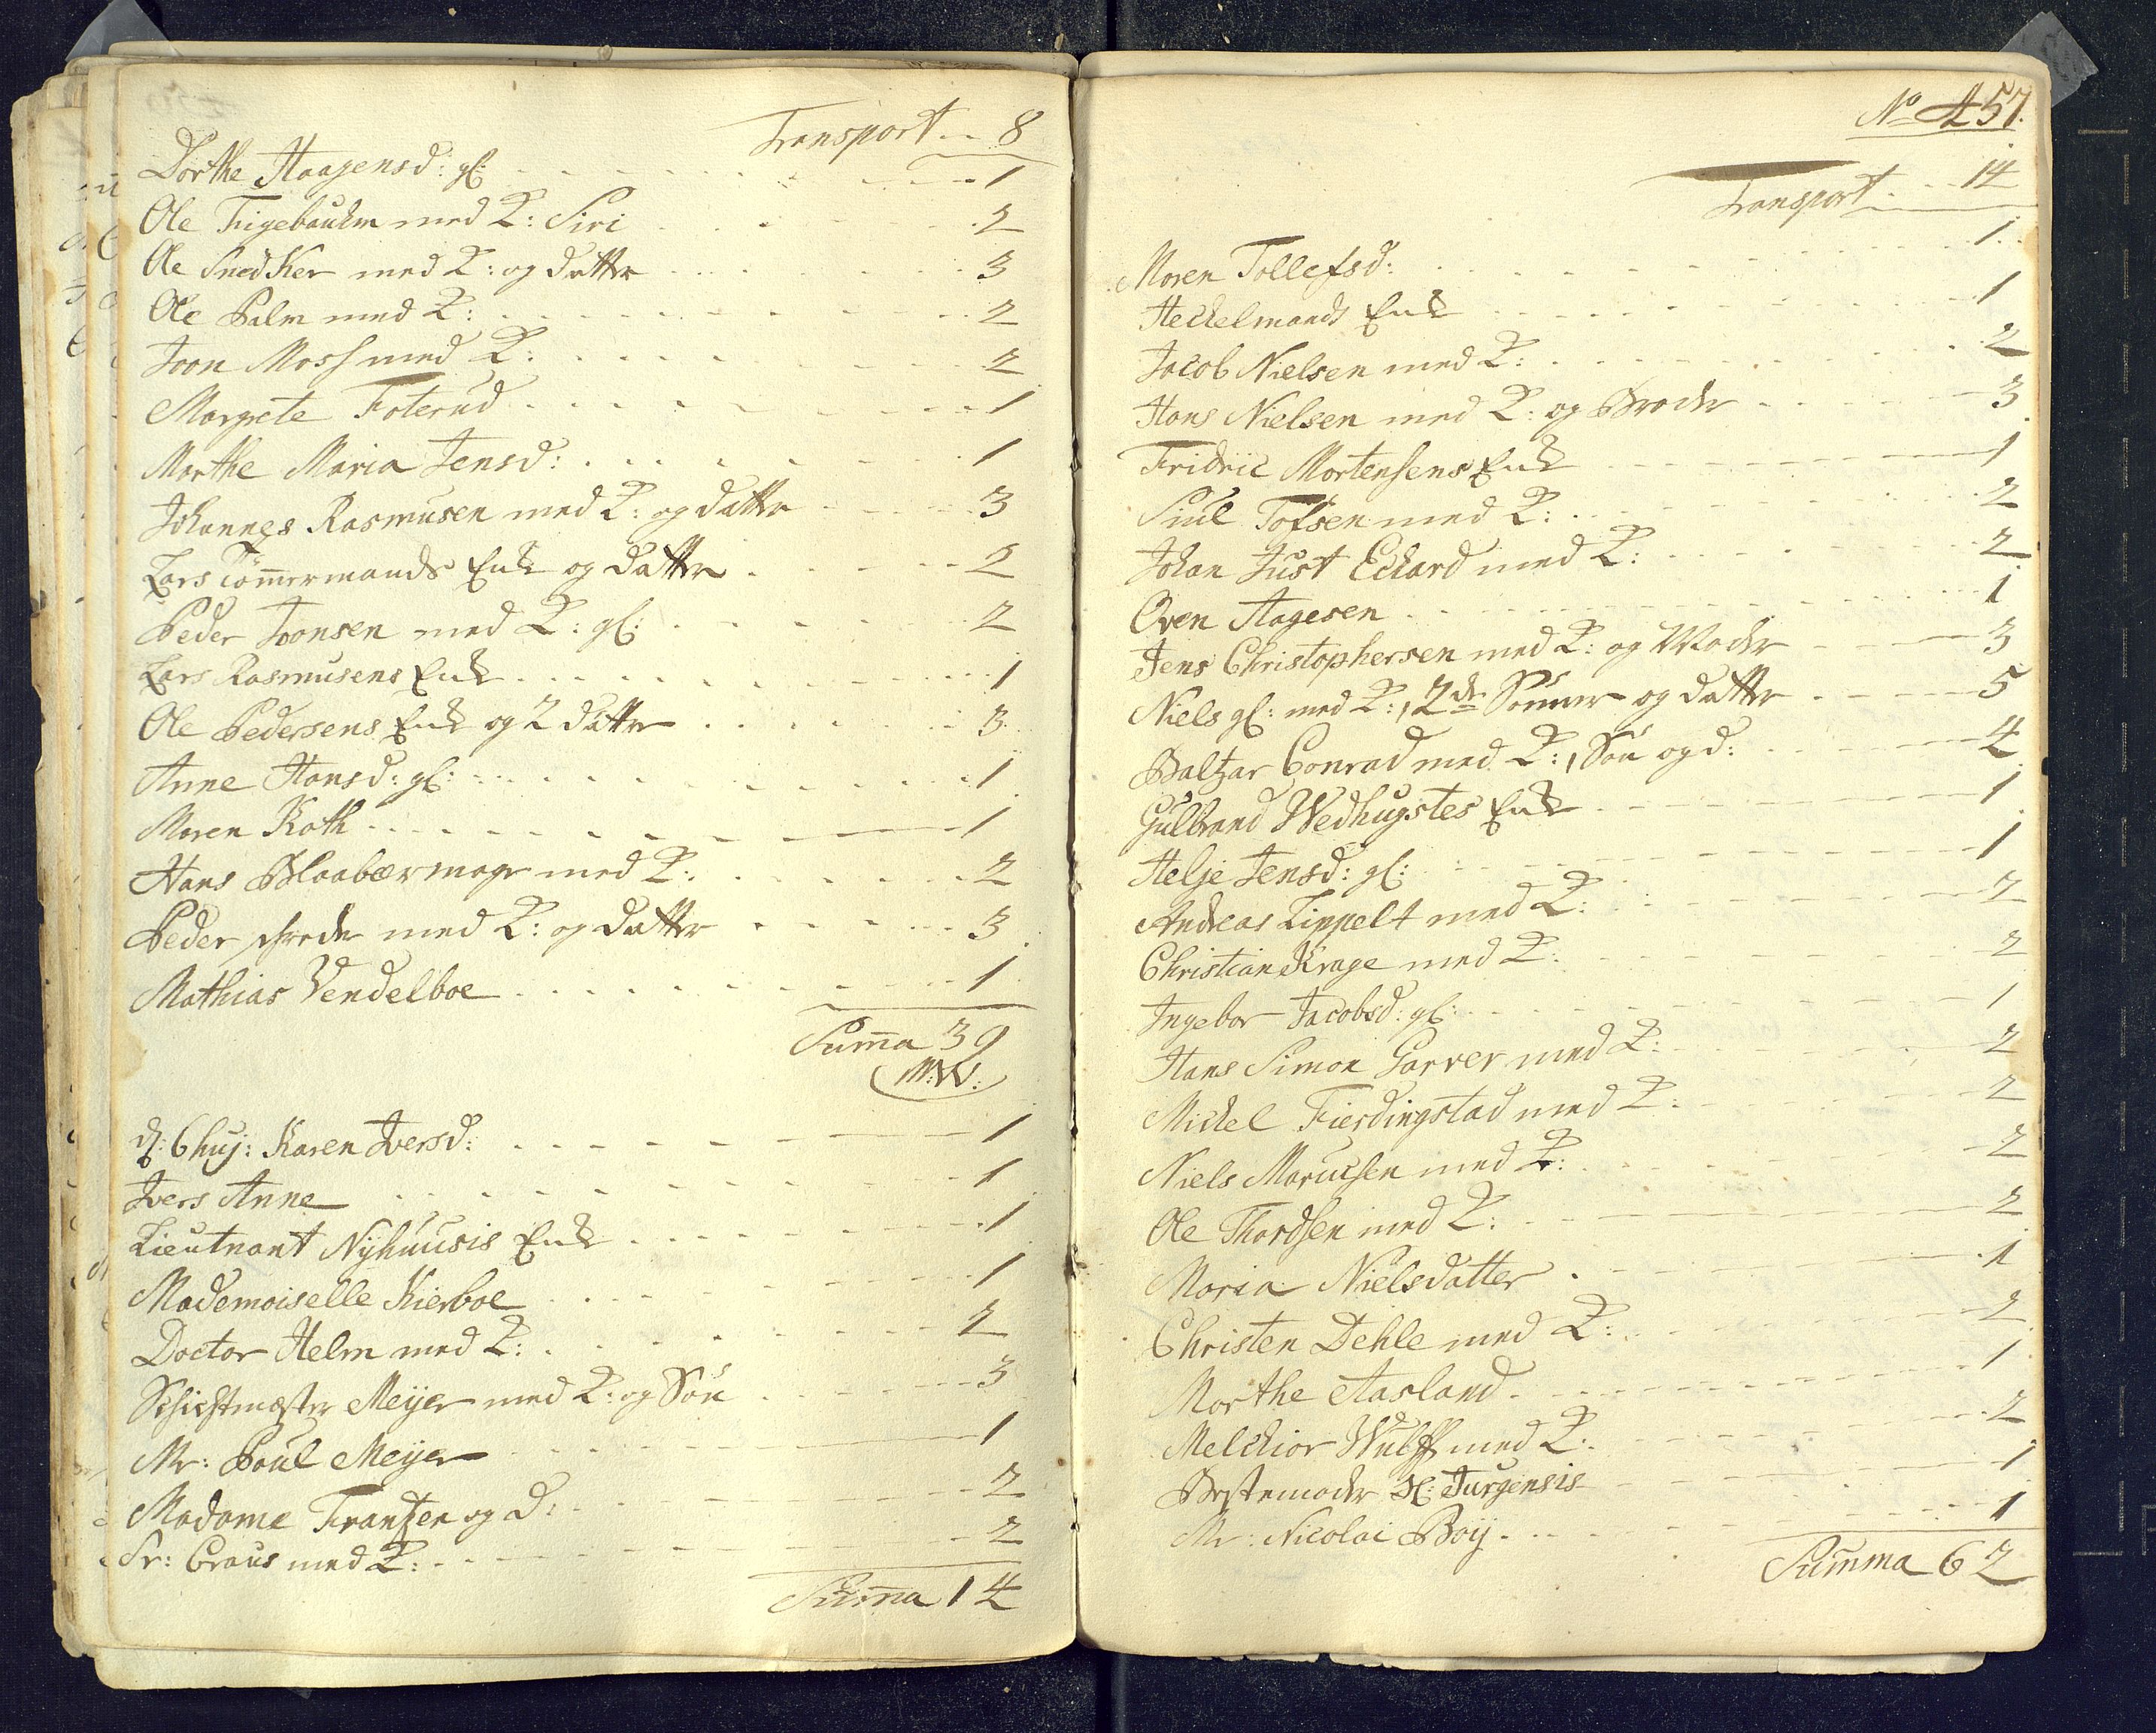 Transport .. 8
Dorthe Haagensd: gl: 1
Ole Frigebauchm med K: Siri 2
Ole Snedker med K: og datter 3
Ole Palm med K: 2
Joon Moss med K: 2
Margrete Foterud 1
Marthe Maria Jensd: 1
Johannes Rasmusen med K: og datter 3
Lars Tømmermands Enke og datter 2
Peder Joonsen med K: gl: 2
Lars Rasmusens Enke 1
Ole Pedersens Enke og 2 døttre 3
Anne Hansd: gl: 1
Maren Koth 1
Hans Blaabærmager med K: 2
Peder med K: og datter 3
Mathias Vendelboe 1
Sum̅a 39
M:W:
d: 6 huj: Karen Iversd: 1
Ivers Anne 1
Lieutnant Nÿhuusis Enke 1
Mademoiselle Kierboe 1
Doctor Helm med K: 2
Schichtmester Meÿer med K: og Søn 3
Mr: Poul Meÿer 1
Madame Frantzen og d: 2
Sr: Craus med K: 2
Sum̅a 14
No 457.
Transport 14
Maren Tollefsd: 1
Heckelmands Enke 1
Jacob Nielsen med K: 2
Hans Nielsen med K: og Broder 3
Fridric Mortensens Enke 1
Siul Tofsen med K: 2
Johan Just Eckard med K: 2
Oven Aagesen 1
Jens Christophersen med K: og Moder 3
Niels gl: med K:, 2de Sønner og datter 5
Baltzar Conrad med K:, Søn og d: 4
Gulbrand Wedhugstes Enke 1
Helje Jensd: gl: 1
Andreas Lippelt med K: 2
Christian Krage med K: 2
Ingebor Jacobsd: gl: 1
Hans Simon Garver med K: 2
Mickel Fierdingstad med K: 2
Niels Marucsen med K: 2
Ole Thordsen med K: 2
Maria Nielsdatter 1
Christen Dehle med K: 2
Marthe Aasland 1
Melchior Wulff med K: 2
Bestemoder Sl: Jurgensis 1
Mr: Nicolai Boÿ 1
Summa 62